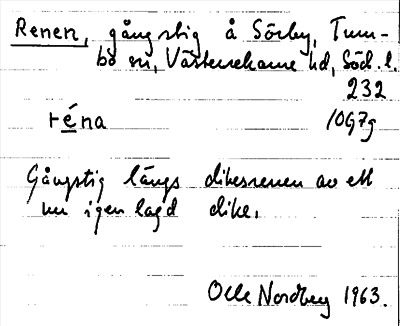 Renen, gångstig å Sörby, Tum-
bo sn, Västerrekarne hd, Söd. l.
232
réna 10G7g
Gångstig längs dikesrenen av ett
nu igen lagd dike.
Olle Nordberg 1963.